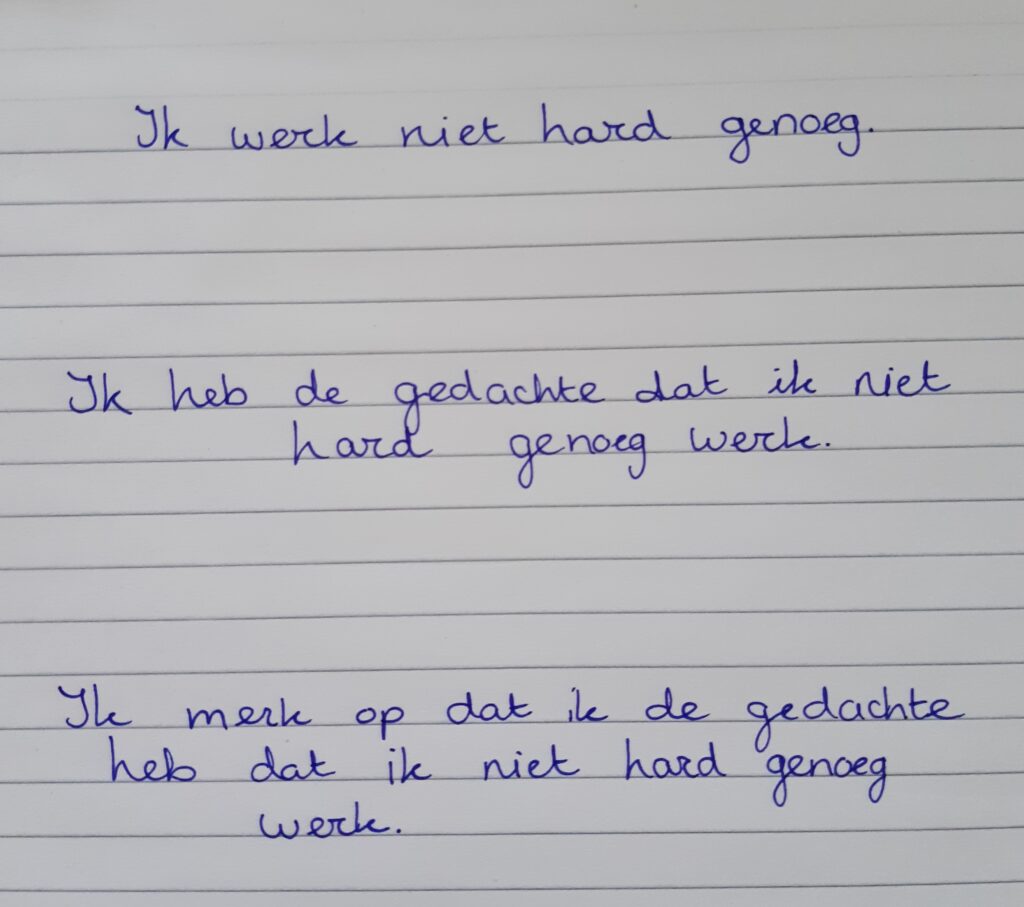 Ik werk niet hard genoeg.
Ik heb de gedachte dat ik niet
hard genoeg werk.
Ik merk op dat ik de gedachte
heb dat ik niet hard genoeg
werk.